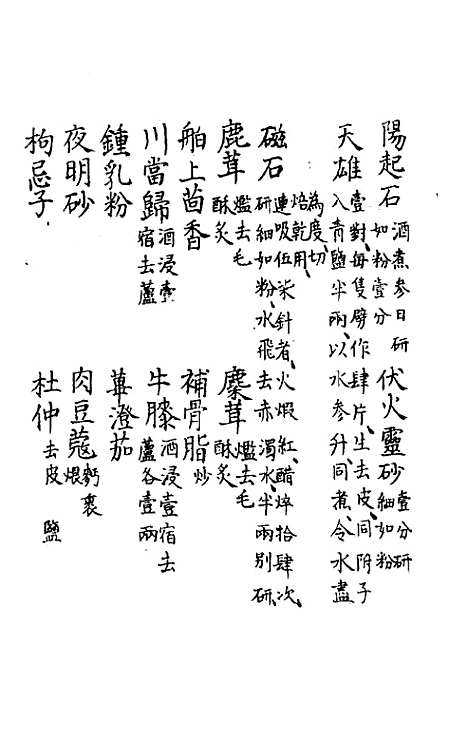 陽起石 酒煮參日研如粉壹分 伏火靈砂 壹分研細如粉
天雄 壹對每隻劈作肆片生去皮同附子入青鹽半兩以水參升同煮令水盡
為度切焙乾用
磁石 連吸伍柒針者火煅紅醋焠拾肆次研細如粉水飛去赤濁水半兩別研
鹿茸 爁去毛酥炙 麋茸 爁去毛酥炙
舶上茴香 補骨脂 炒
川當歸 酒浸壹宿去蘆 牛膝 酒浸壹宿去蘆各壹兩
鍾乳粉 蓽澄茄
夜明砂 肉豆蔻 麪裹煨
枸忌子 杜仲 去皮 鹽